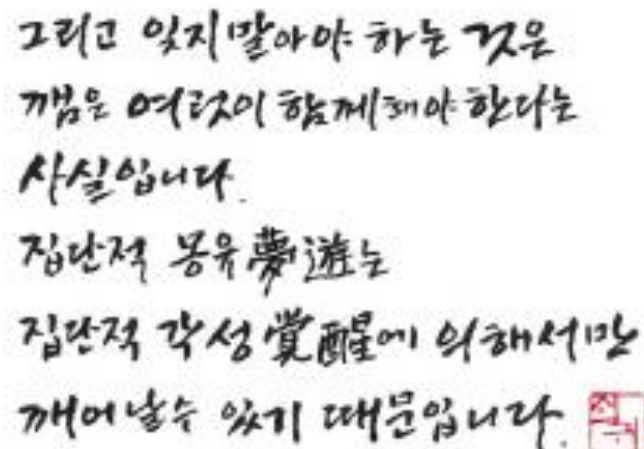 그리고 잊지말아야 하는 것은
깸은 여럿이 함께해야 한다는
사실입니다.
집단적 몽유夢遊는
집단적 각성覺醒에 의해서만
깨어날수 있기 때문입니다.